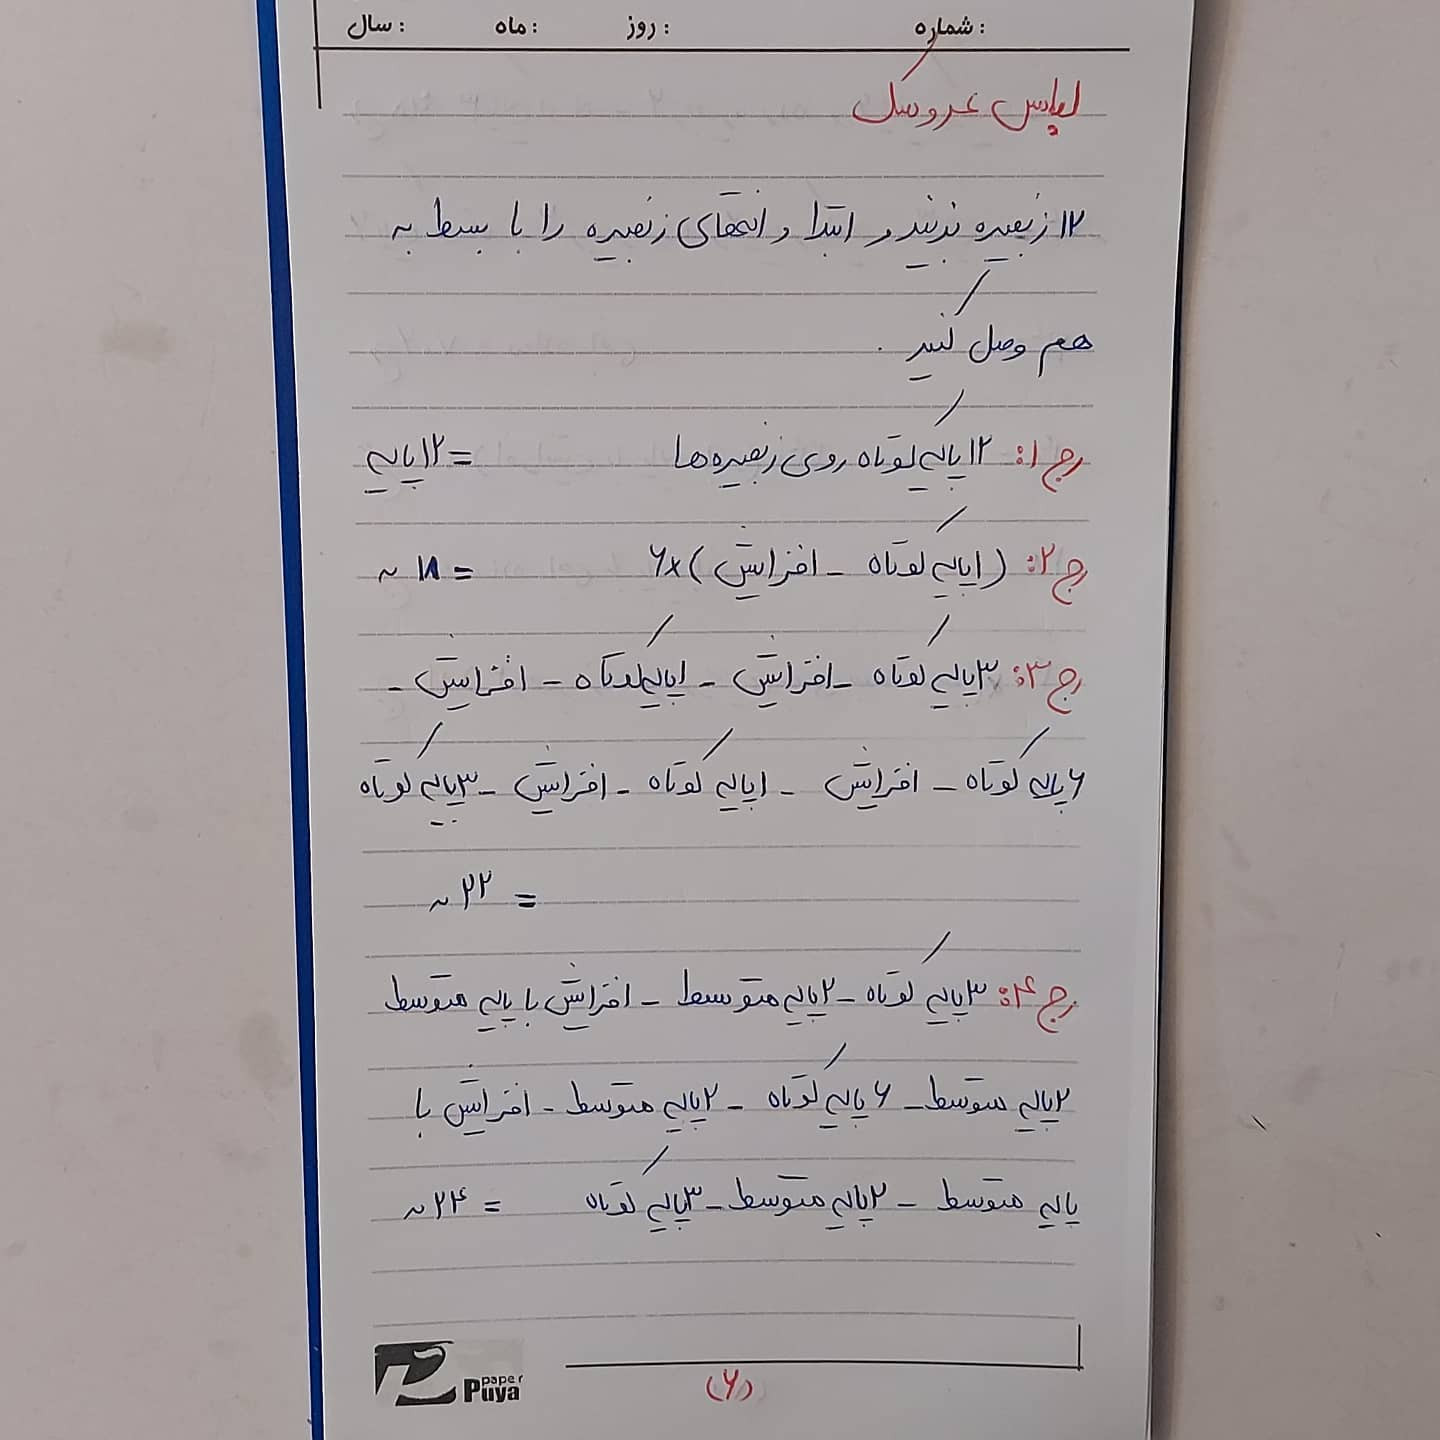 شماره : روز : ماه : سال :
لباس عروسک
۱۲ زنجیره بزنید و ابتدا و انتهای زنجیره را با بسط به
هم وصل کنید .
رج ۱: ۱۲ پایه کوتاه روی زنجیره ها = ۱۲ پایه
رج ۲: (۱ پایه کوتاه - افزایش) ×۶ = ۱۸ ~
رج ۳: ۳ پایه کوتاه - افزایش - ۱ پایه کوتاه - افزایش -
۶ پایه کوتاه - افزایش - ۱ پایه کوتاه - افزایش - ۳ پایه کوتاه
= ۲۲ ~
رج ۴: ۳ پایه کوتاه - ۲ پایه متوسط - افزایش با پایه متوسط
۲ پایه متوسط - ۶ پایه کوتاه - ۲ پایه متوسط - افزایش با
پایه متوسط - ۲ پایه متوسط - ۳ پایه کوتاه = ۲۴ ~
paper
Puya
(۶)